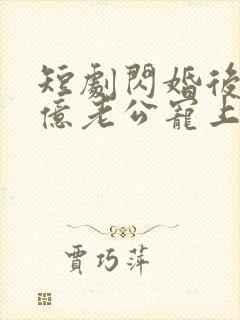 短劇閃婚後
億老公寵上
賈巧萍